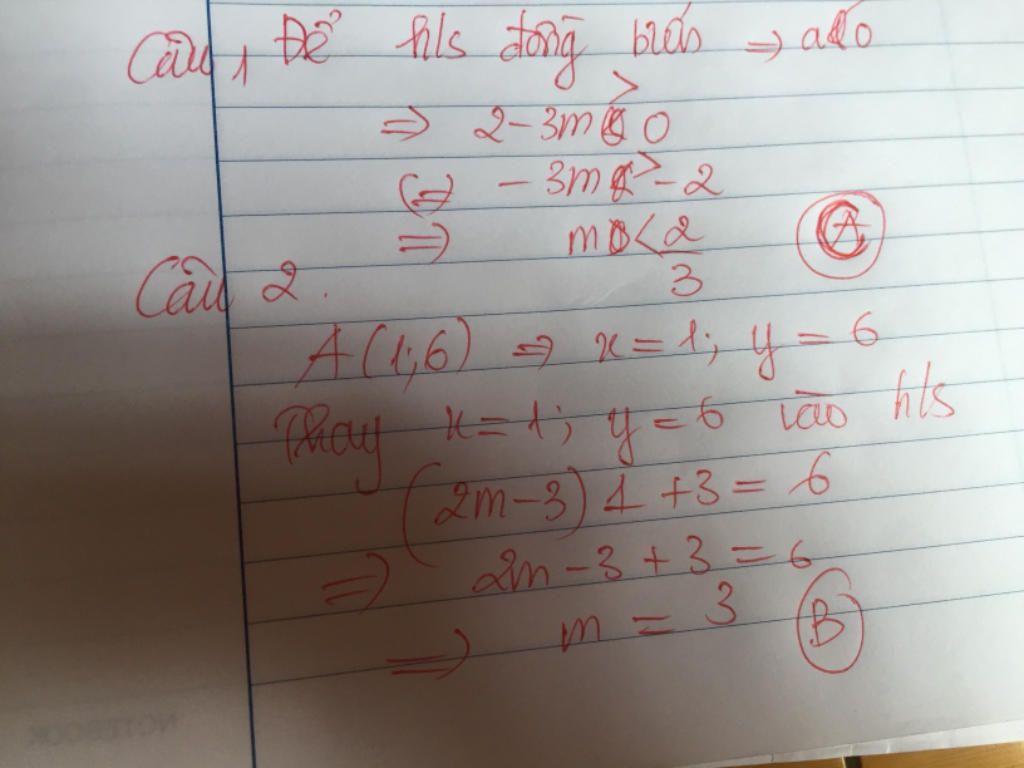 Câu 1 Để h/s đồng biến => a<0
=> 2 - 3m > 0
(=) - 3m > - 2
=> m < 2/3 A
Câu 2.
A(1;6) => x = 1; y = 6
Thay x = 1; y = 6 vào h/s
(2m - 3) 1 + 3 = 6
=> 2m - 3 + 3 = 6
=> m = 3 B
NOTEBOOK